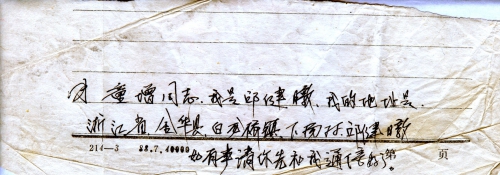 重增同志.我是邱健曦.我的地址是.
浙江省金华县白龙桥镇下 村邱健曦
214—3 88.7.40000 第 页
如有事请你先和我通信好了